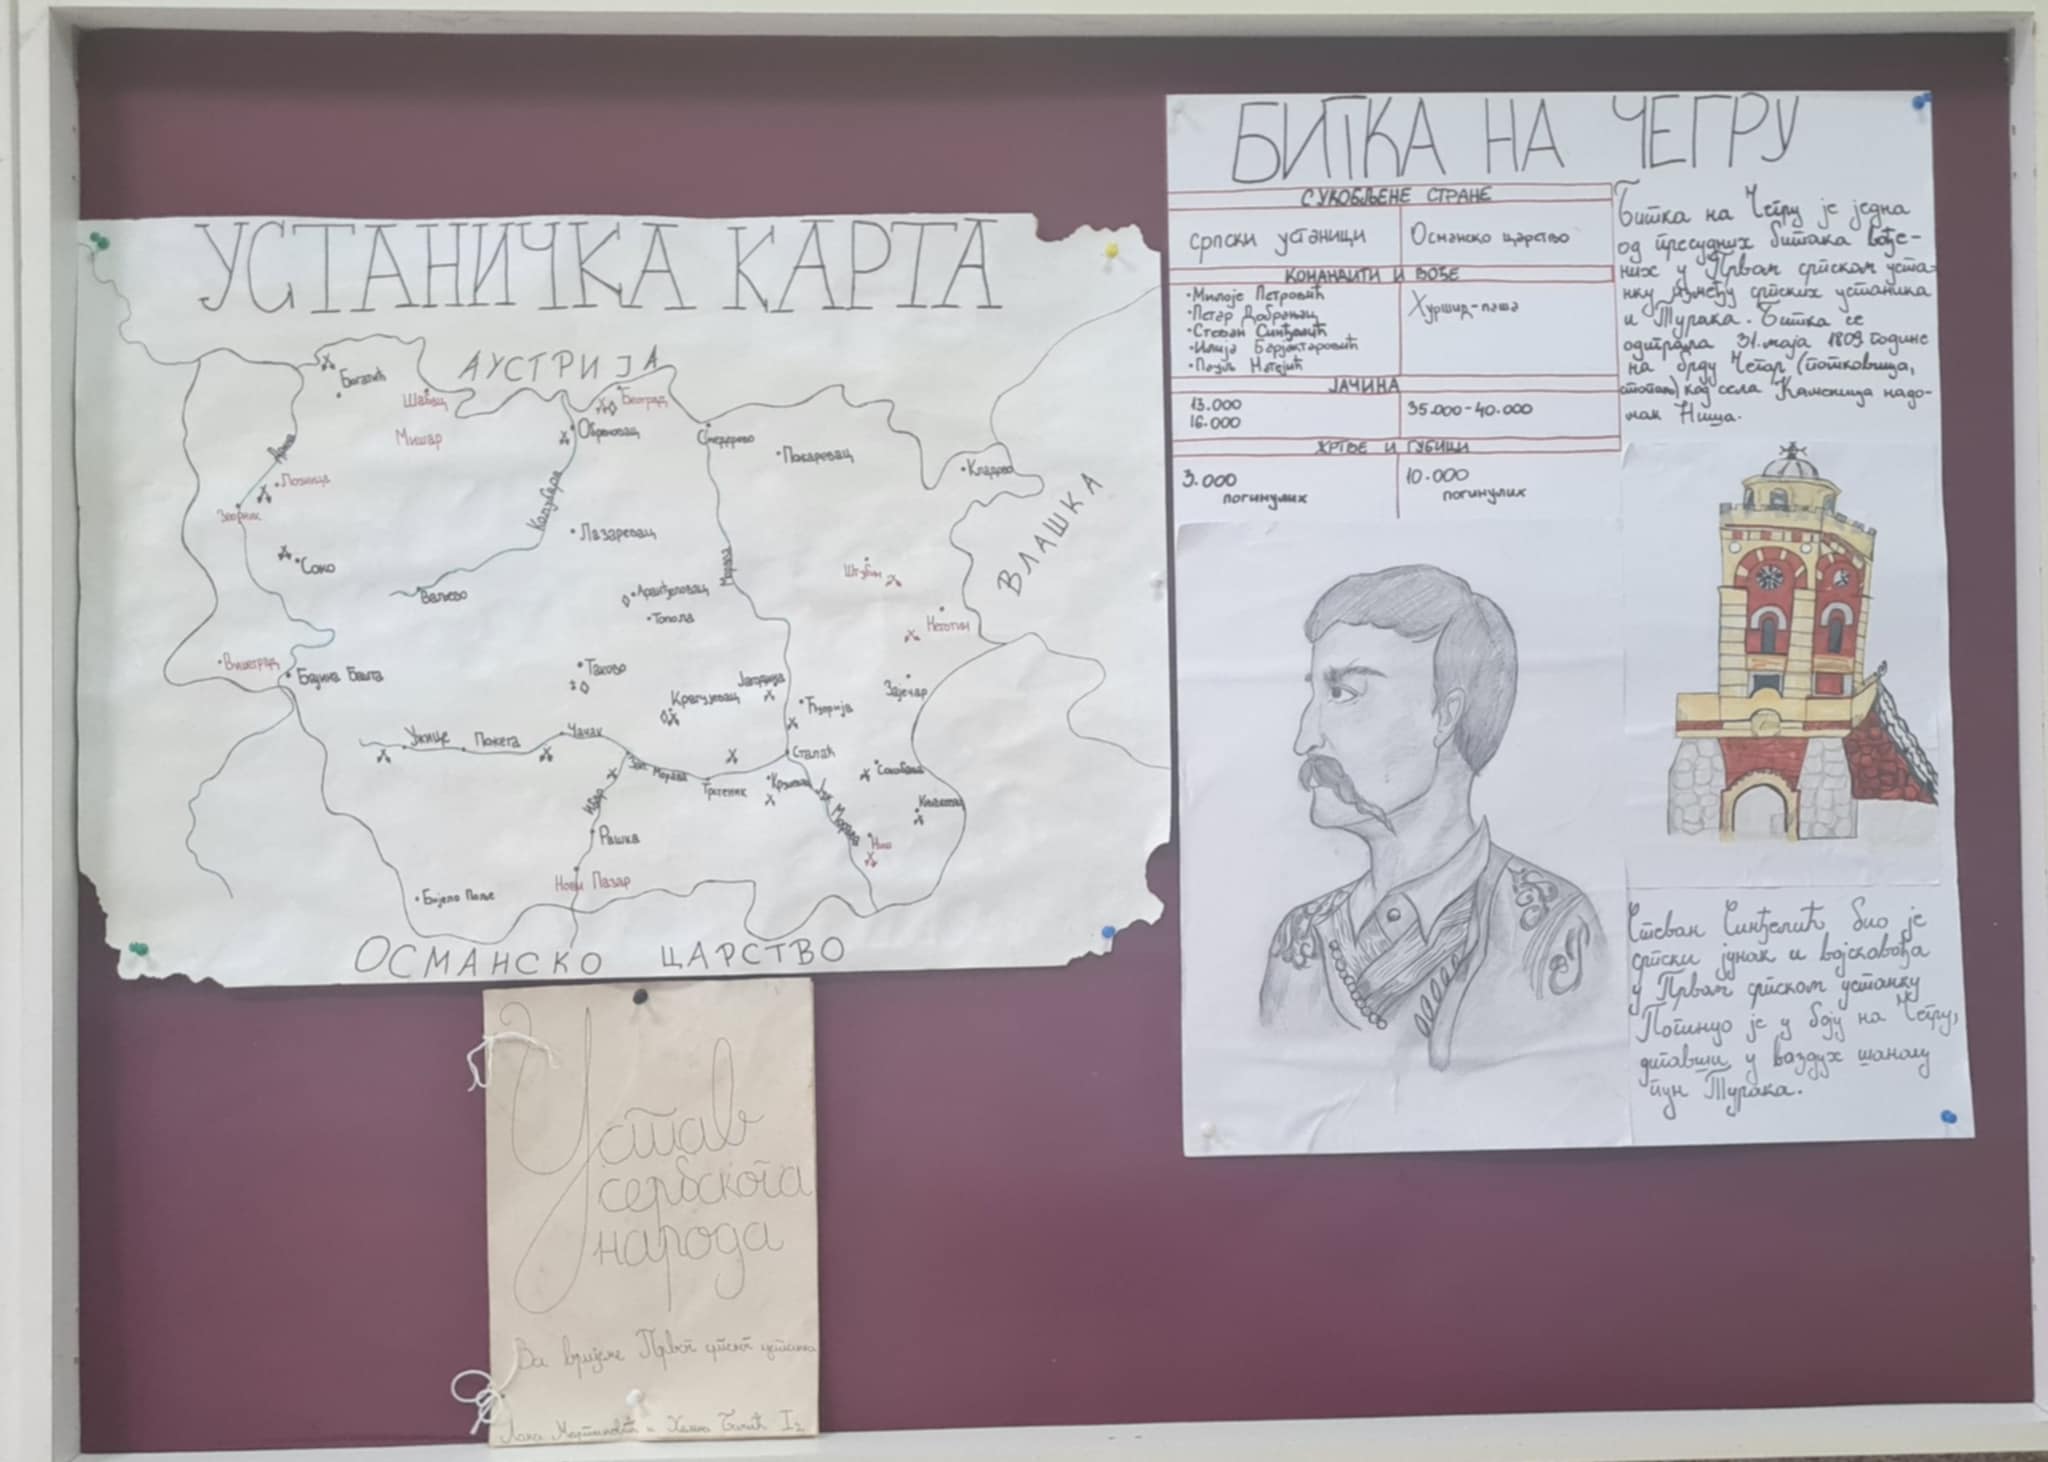 УСТАНИЧКА КАРТА
АУСТРИЈА
Богатић
Шабац
Београд
Мишар
Обреновац
Смедерево
Дрина
Пожаревац
Кладово
Лозница
Колубара
Зворник
ВЛАШКА
Лазаревац
Соко
Морава
Штубик
Ваљево
Аранђеловац
Топола
Неготин
Вишеград
Бајина Башта
Таково
Јагодина
Зајечар
Крагујевац
Ћуприја
Ужице
Пожега
Чачак
Сталаћ
Зап. Морава
Трстеник
Крушевац
Јуж. Морава
Сокобања
Књажевац
Ибар
Рашка
Ниш
Нови Пазар
Бијело Поље
ОСМАНСКО ЦАРСТВО
Устав
сербскога
народа
За вријеме Првог српског устанка
БИТКА НА ЧЕГРУ
СУКОБЉЕНЕ СТРАНЕ
српски устаници
Османско царство
КОМАНДАНТИ И ВОЂЕ
•Милоје Петровић
•Петар Добрњац
•Стеван Синђелић
•Илија Барјактаровић
•Пауљ Матејић
Хуршид-паша
ЈАЧИНА
13.000
16.000
35.000-40.000
ЖРТВЕ И ГУБИЦИ
3.000
погинулих
10.000
погинулих
Битка на Чегру је једна
од пресудних битака вође-
них у Првом српском уста-
нку између српских устаника
и Турака. Битка се
одиграла 31. маја 1809. године
на брду Чегар (потковица,
стопало) код села Каменица надо-
мак Ниша.
Стеван Синђелић био је
српски јунак и војсковођа
у Првом српском устанку
Погинуо је у боју на Чегру,
дигавши у ваздух шанац
пун Турака.